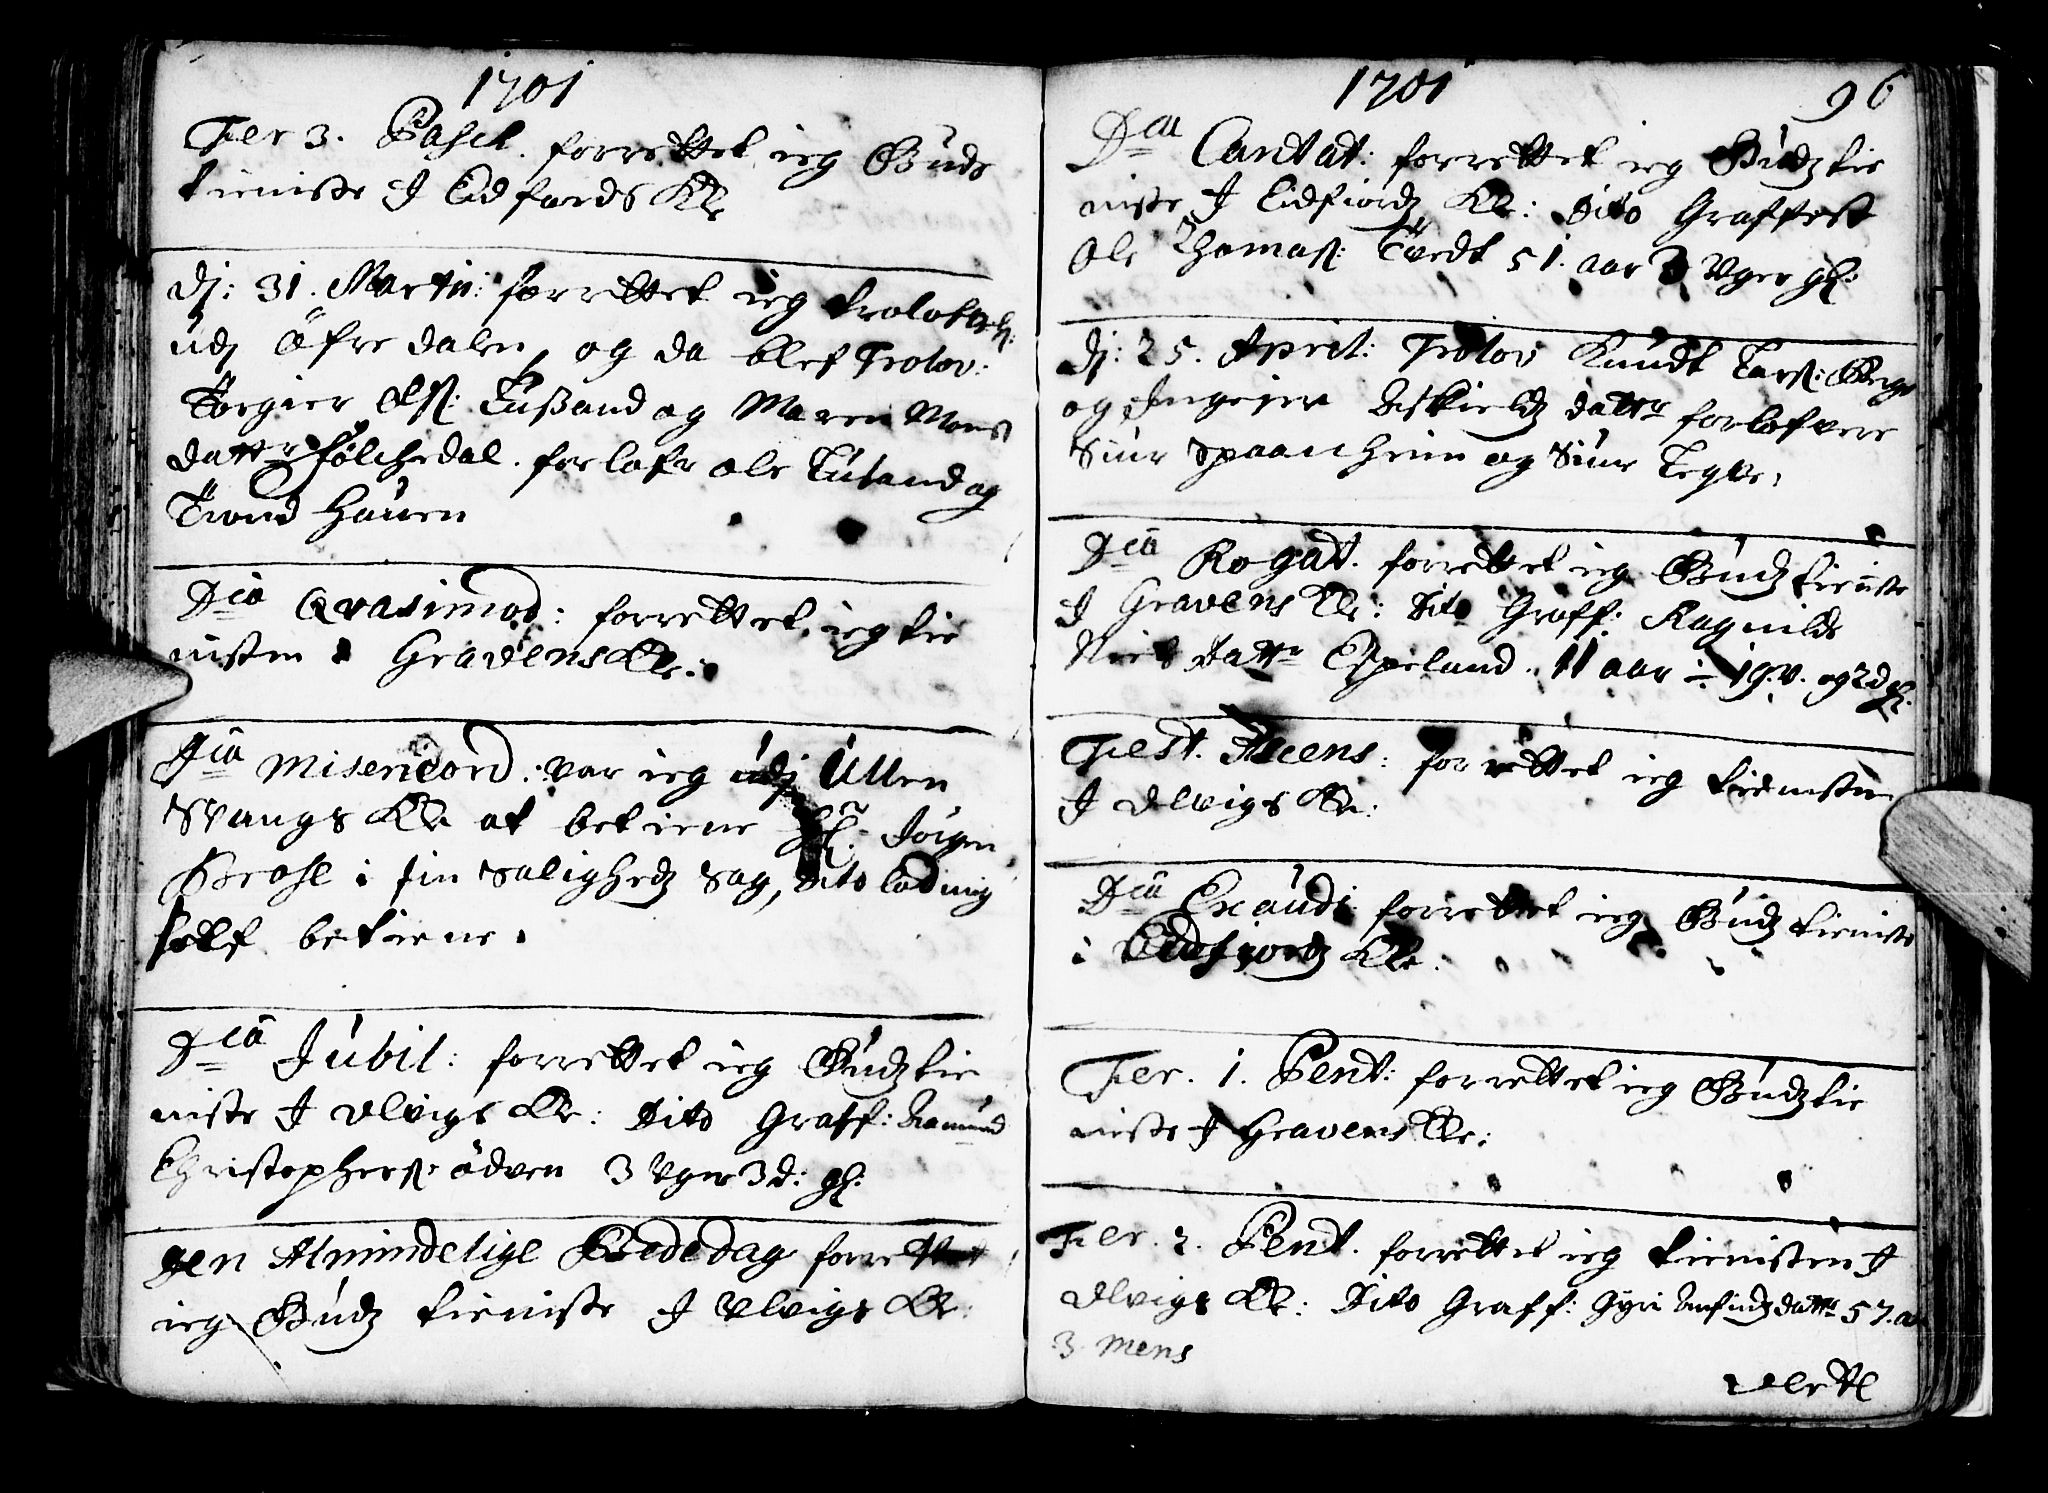 1701
Fer 3. Pasch. forrettet ieg Guds
tieniste J Eidfiords Kk
dj: 31. Martij: forrettet ieg trolofwelß:
udj öfre dalen, og da blef Trolov:
Torgier Olß: Tußand og Maren Mons
dattr fölchedal. forlofr Ole Tusand og
Trond Hauen
Dca Qvasimod: forrettet ieg tie
nisten i GravensKk:
Dca Misericord: var ieg udj Ullen
Svangs Kk at betiene Hr. Jörgen
i sin Salighedz Sag, dito lod mig
self betiene.
Dca Jubil: forrettet ieg Gudz tie
niste J Vlvigs Kk: Dito Graff: Aamund
Christophersß: ödven 3 Vger 3 d: gl:
Den Almindelige Bededag forrettet
ieg Gudz tieniste J Vlvigs Kk:
1701 96
Dca Cantat: forrettet ieg Gudz tie
niste J Eidfiordz Kk: Dito Graffest
Ole Thomaß: Tvedt 51. aar 3 Vger gl:
dj: 25. April: Trolov Knudt Larß: Berge
og Ingejer Askieldz dattr forlofvere
Siur Spaanheim og Siur Legve,
Dca Rogat. forrettet ieg Gudz tieniste
J Gravens Kk: Dito Graff: Ragnilde
Niels Dattr Espeland. 11 aar ÷ 19. V. og 2 d gl:
Fest. Ascens: forrettet ieg tienisten
J Vlvigs Kk:
Dca Exaudi forrettet ieg Gudz tieniste
i Eidfiordz Kk.
Fer. 1. Pent: forrettet ieg Gudz tie
niste J Gravens Kk:
Fer. 2. Pent. forrettet ieg tienisten J
Vlvigs Kk: Dito Graff: Gyri Anfindz dattr 57. aar
3 Mens
Verte